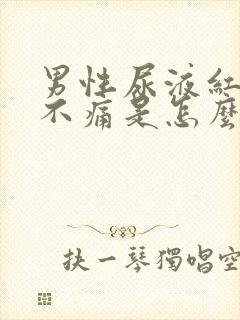 男性尿液紅
不痛是怎麼
抉一琴獨唱空